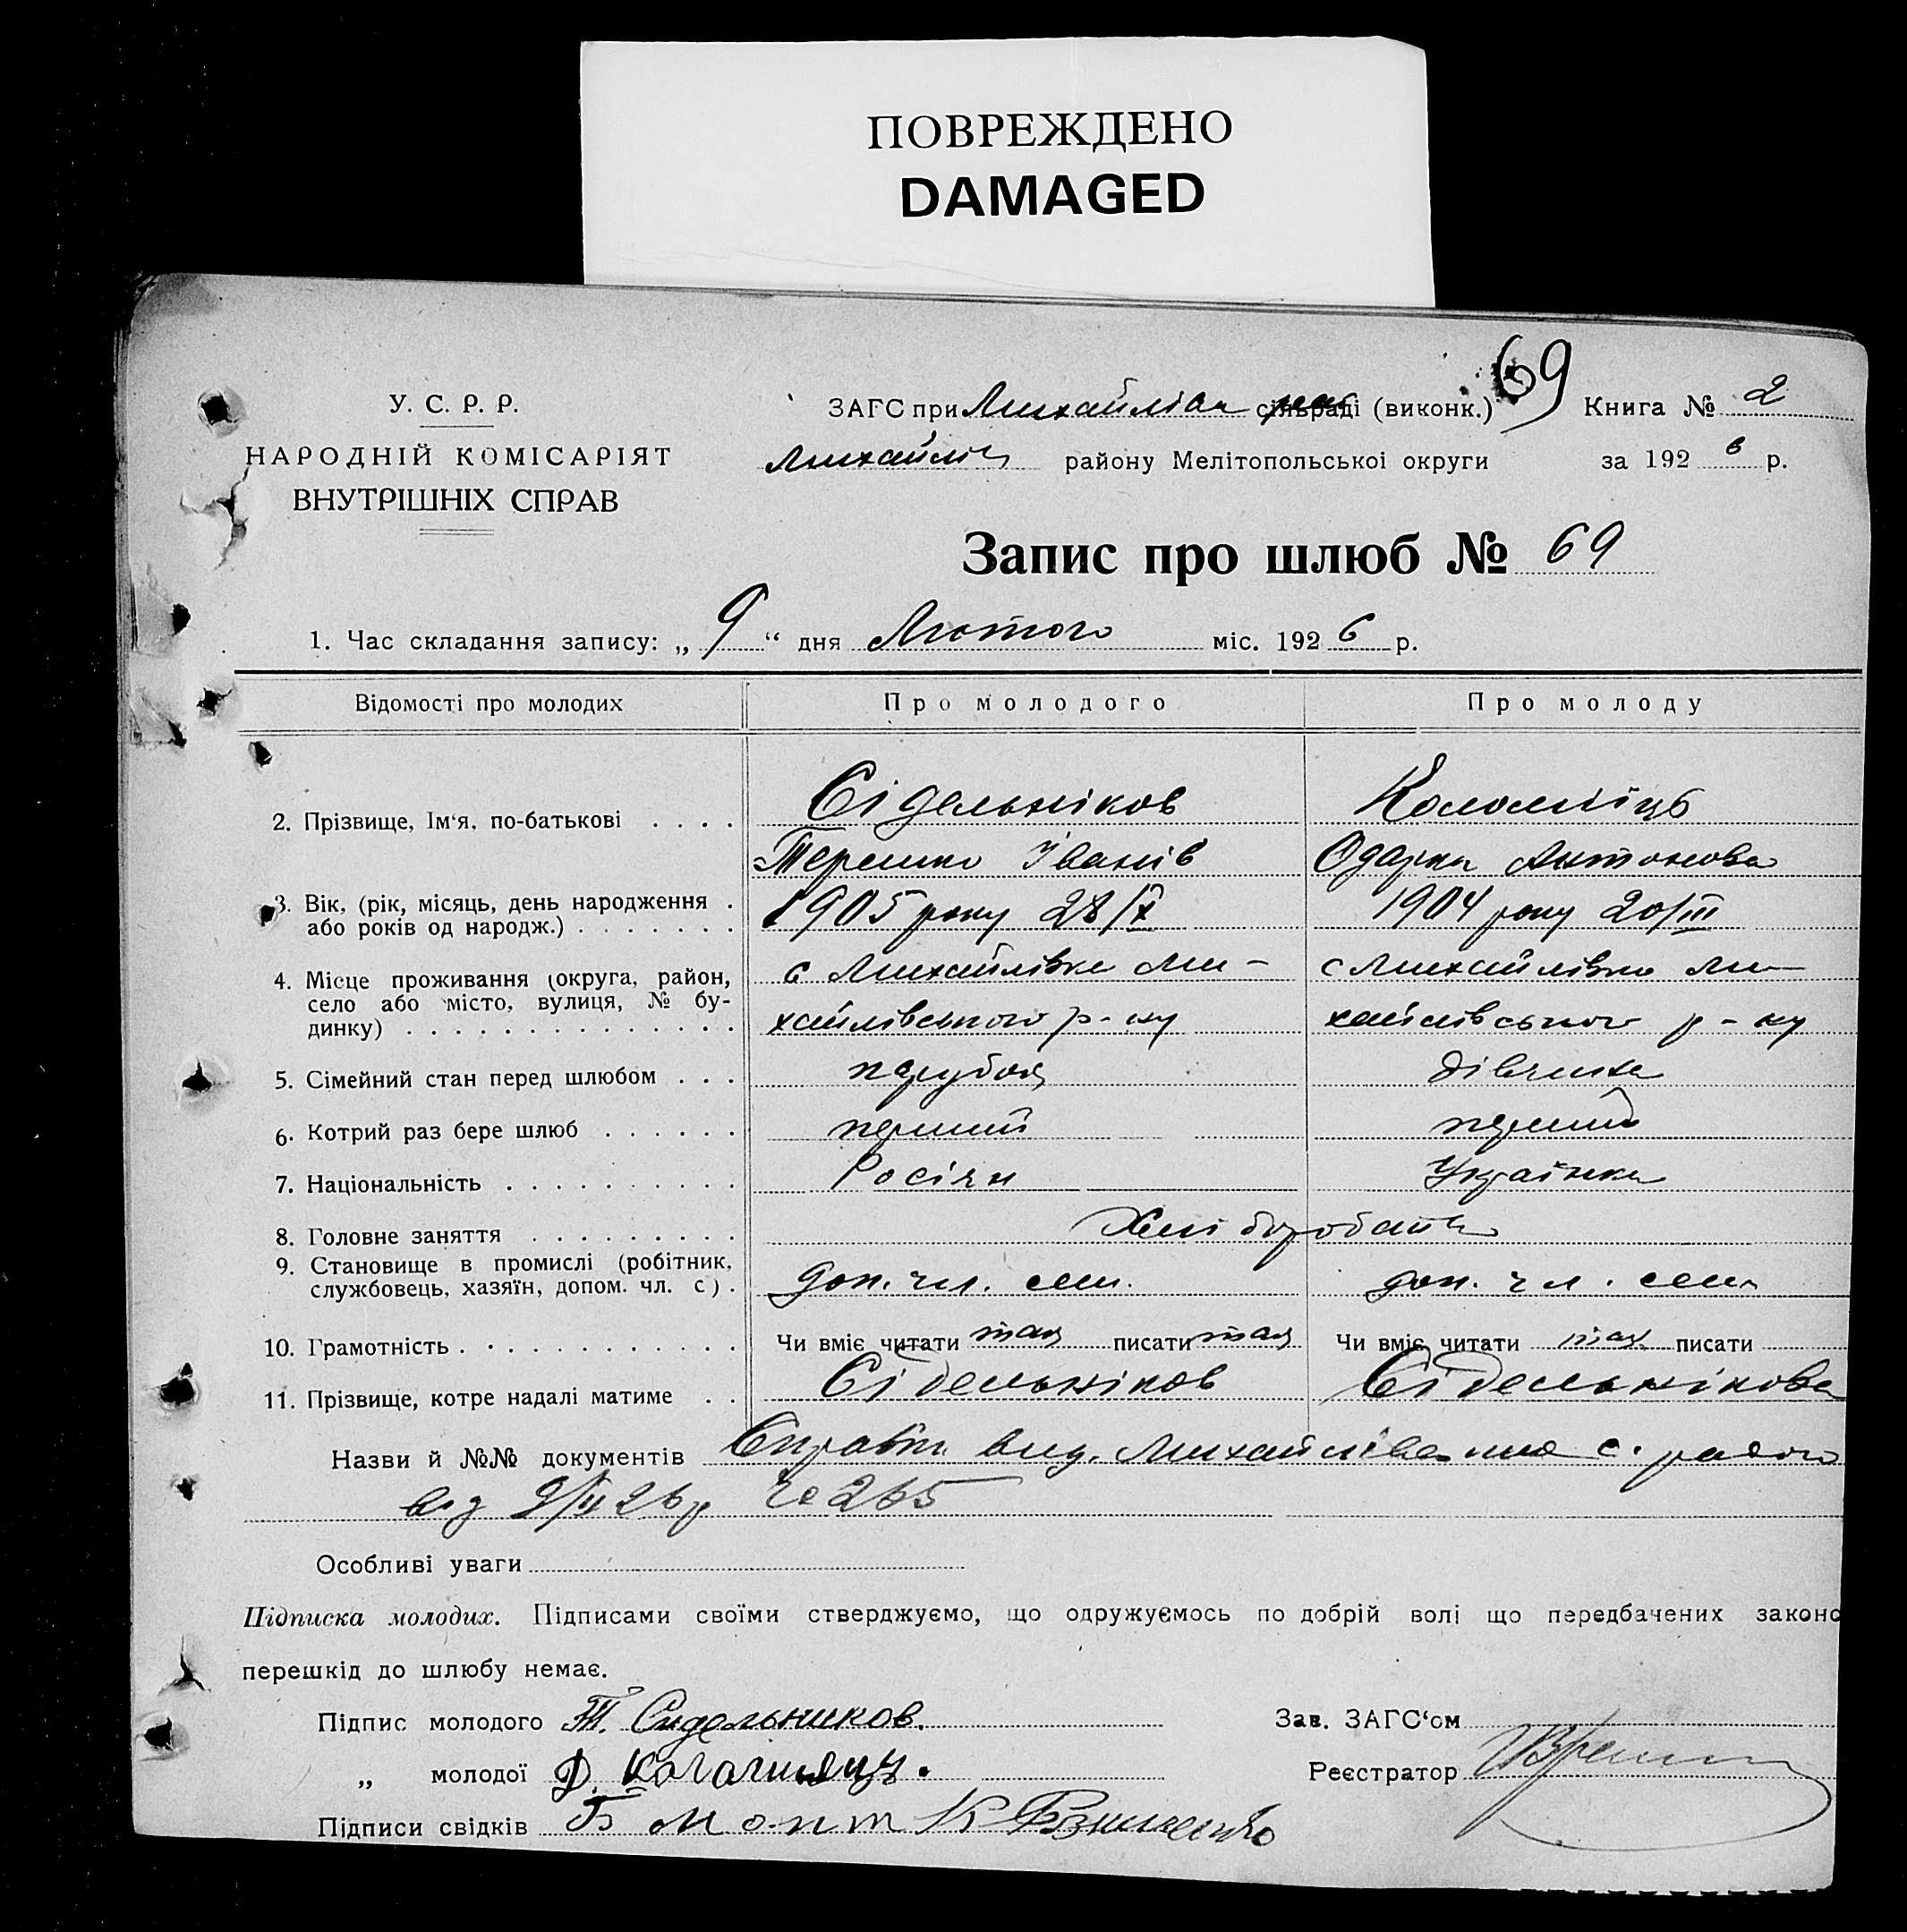 ПОВРЕЖДЕНО
DAMAGED
69
У. С. Р. Р.
НАРОДНІЙ КОМІСАРІЯТ
ВНУТРІШНІХ СПРАВ
ЗАГС при Михайлів сільраді (виконк.) Книга № 2
Михайлів району Мелітопольської округи за 192 6 р.
Запис про шлюб № 69
1. Час складання запису: „ 9 “ дня Лютого міс. 192 6 р.
Відомості про молодих Про молодого Про молоду
2. Прізвище, Ім‘я, по-батькові . . . . Сідельніков Коломієць
Терешко Іванів Одарка Антонова
3. Вік, (рік, місяць, день народження . 1905 року 28/X 1904 року 20/III
або років од народж.) . . . . . . .
4. Місце проживання (округа, район, с Михайлівка Ми- с Михайлівка Ми-
село або місто, вулиця, № бу-
динку) . . . . . . . . . . . . . . хайлівського р-ну хайлівського р-ну
5. Сімейний стан перед шлюбом . . . парубок дівчина
6. Котрий раз бере шлюб . . . . . . перший перший
7. Національність . . . . . . . . . . Росіян Українка
8. Головне заняття . . . . . . . . . Хліборобств
9. Становище в промислі (робітник,
службовець, хазяїн, допом. чл. с) . доп. чл. сем. доп. чл. сем.
10. Грамотність . . . . . . . . . . . . Чи вміє читати так писати так Чи вміє читати так писати
11. Прізвище, котре надалі матиме . . Сідельніков Сідельнікова
Назви й №№ документів Справка вид. Михайлівською с. радою
від 9/II 26 р № 265
Особливі уваги
Підписка молодих. Підписами своїми стверджуємо, що одружуємось по добрій волі що передбачених законо
перешкід до шлюбу немає.
Підпис молодого Т. Сидельников. Зав. ЗАГС‘ом
„ молодої Д. Коломиец. Реєстратор
Підписи свідків